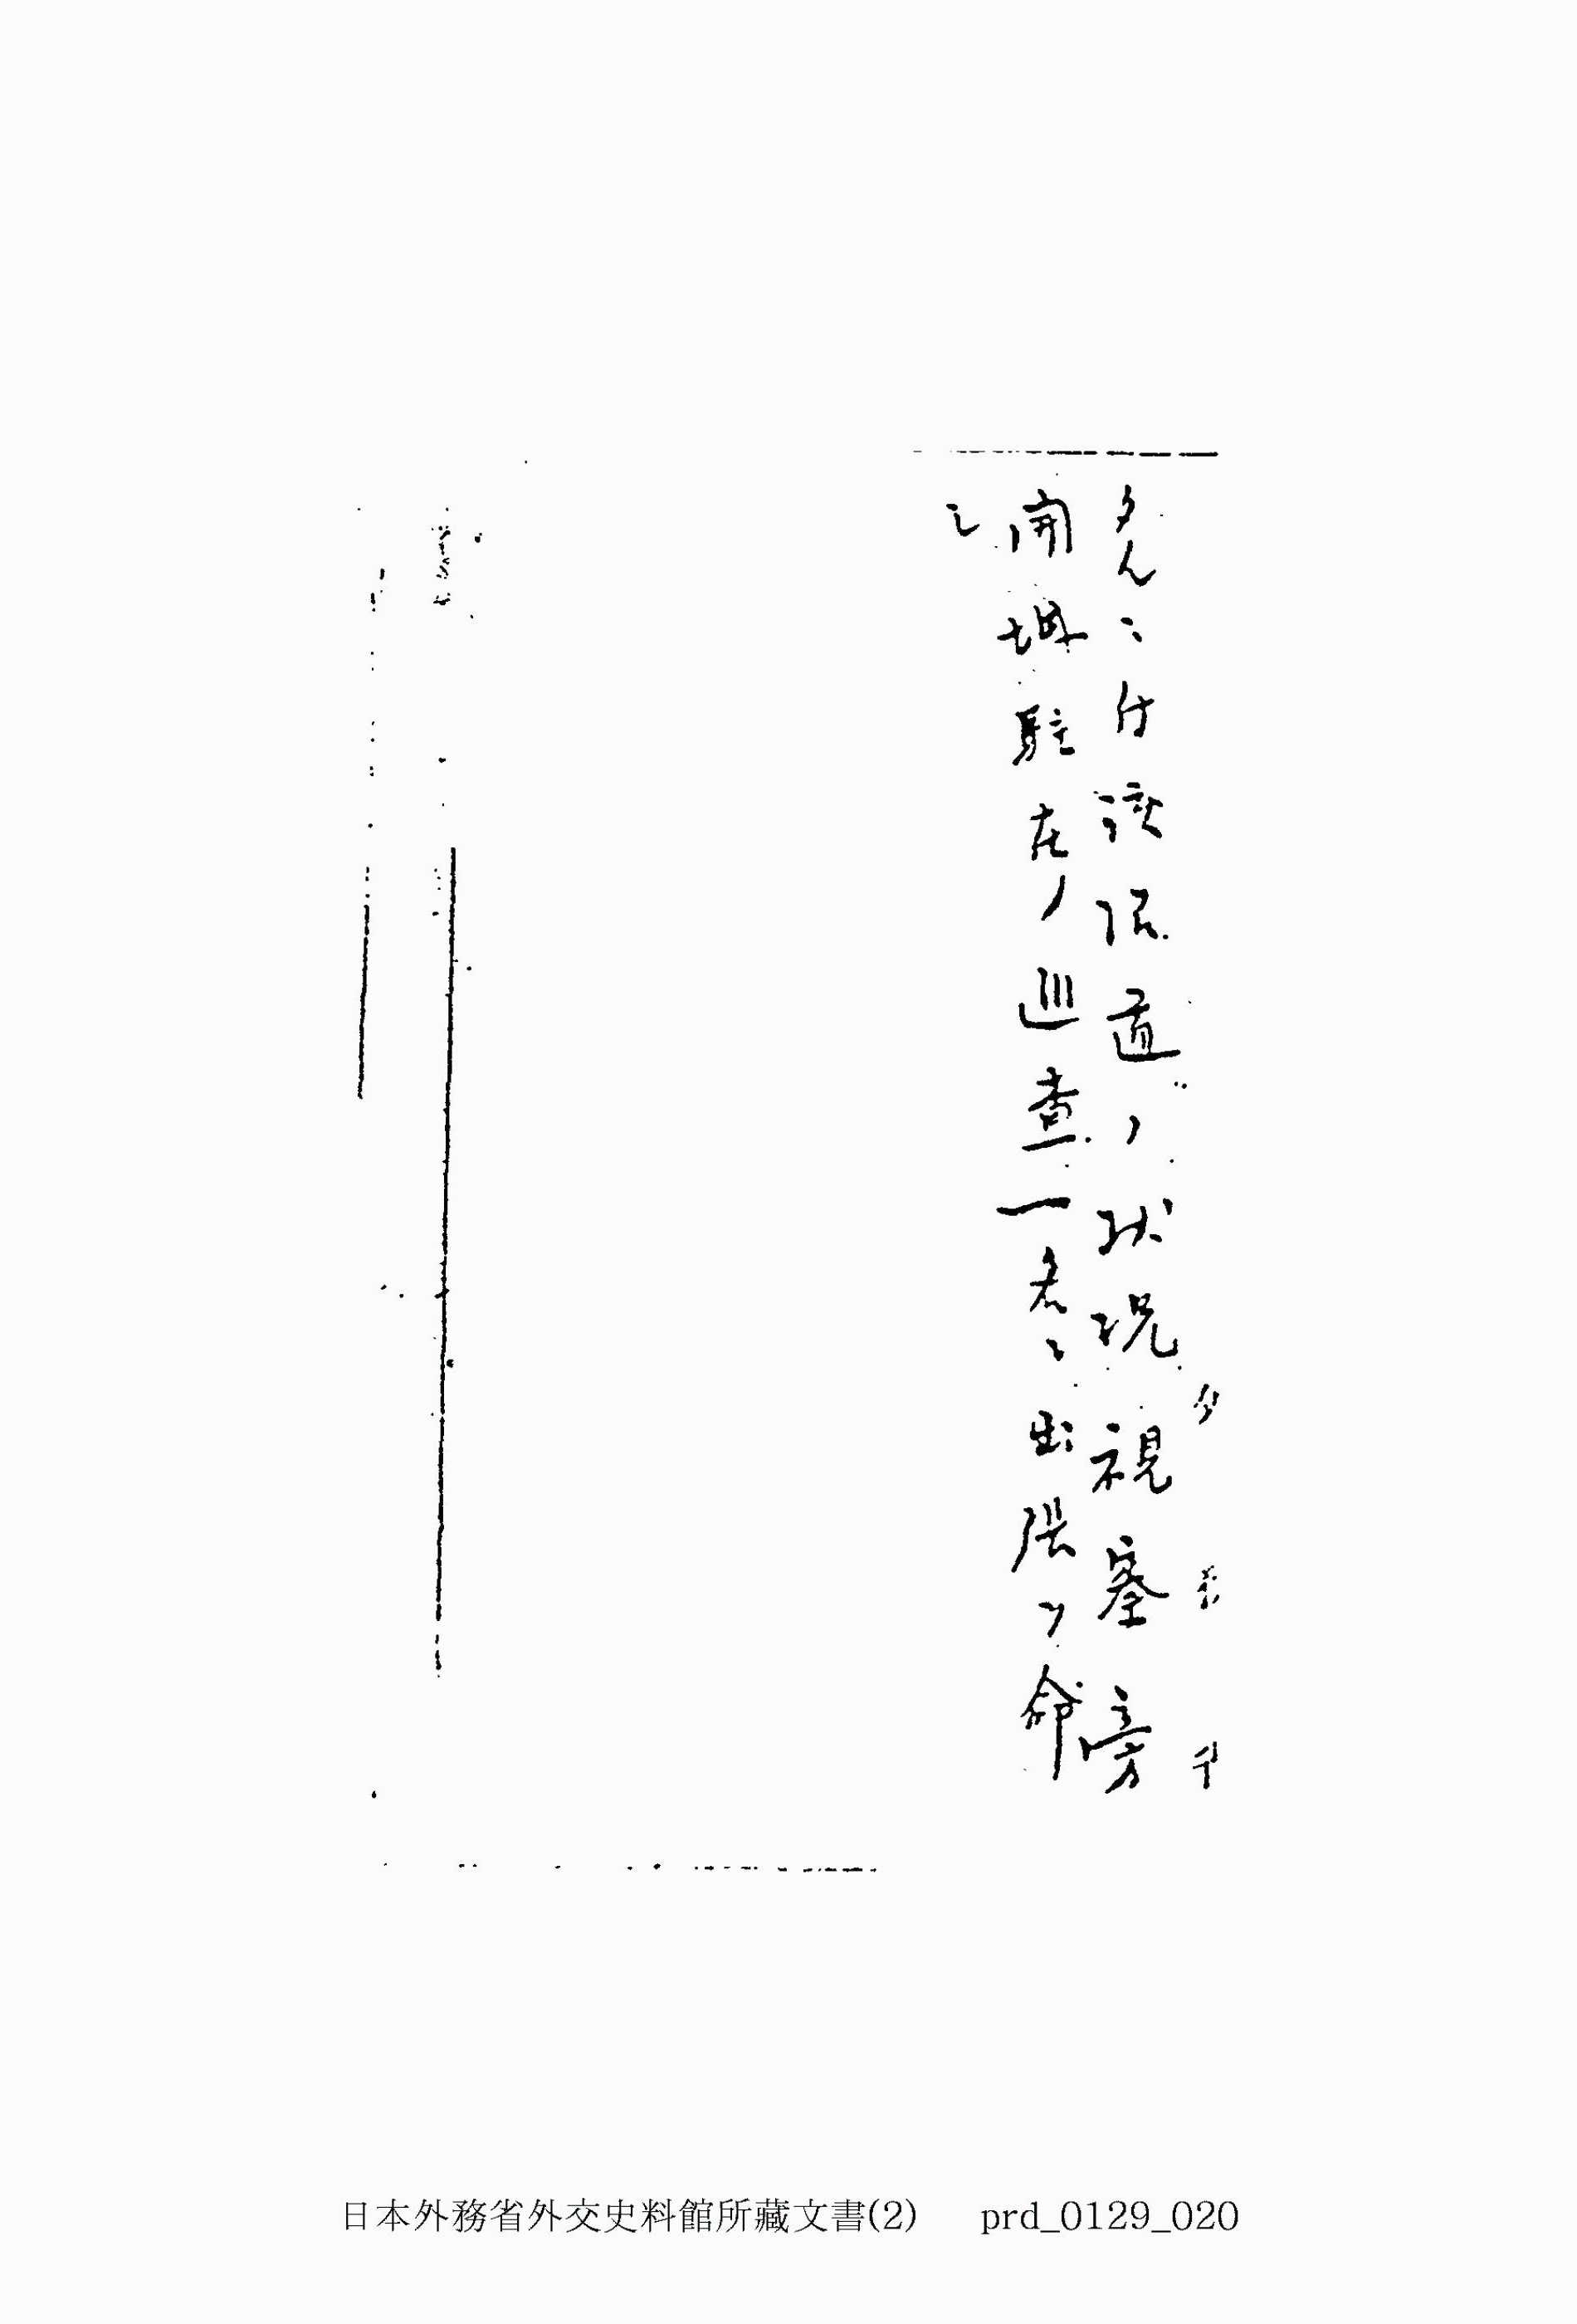 タルニ付該限道ノ状況視察旁
開城駐在ノ巡査一名ニ出張ヲ命
シ
日本外務省外交史料館所藏文書(2) prd_0129_020